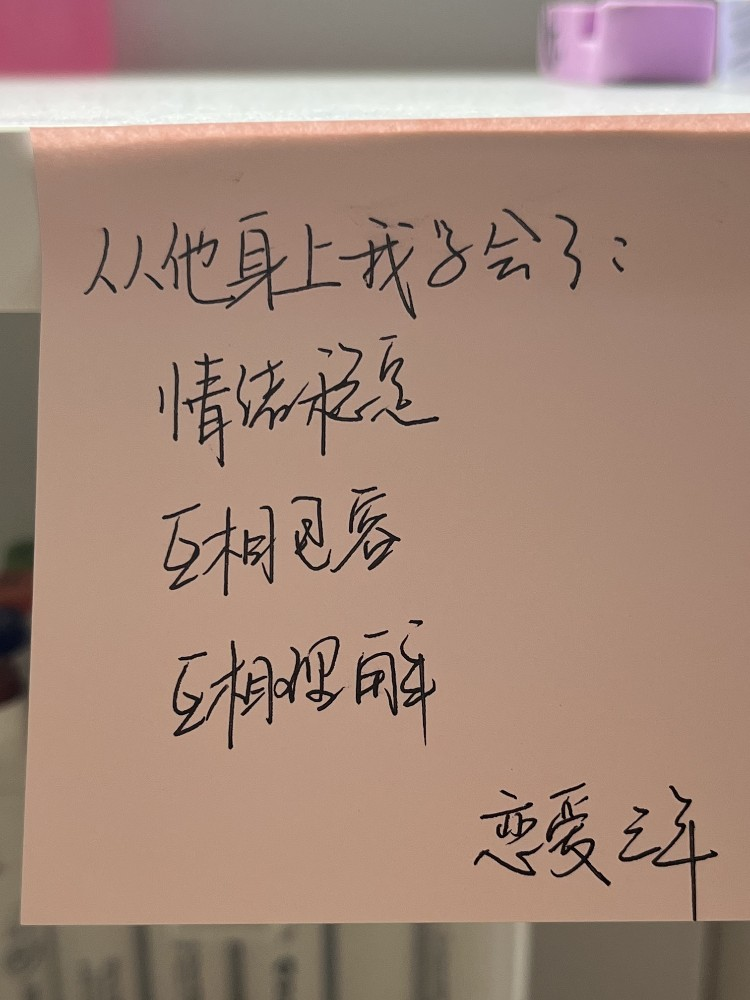 从他身上我学会了：
情绪稳定
互相包容
互相理解
恋爱三年